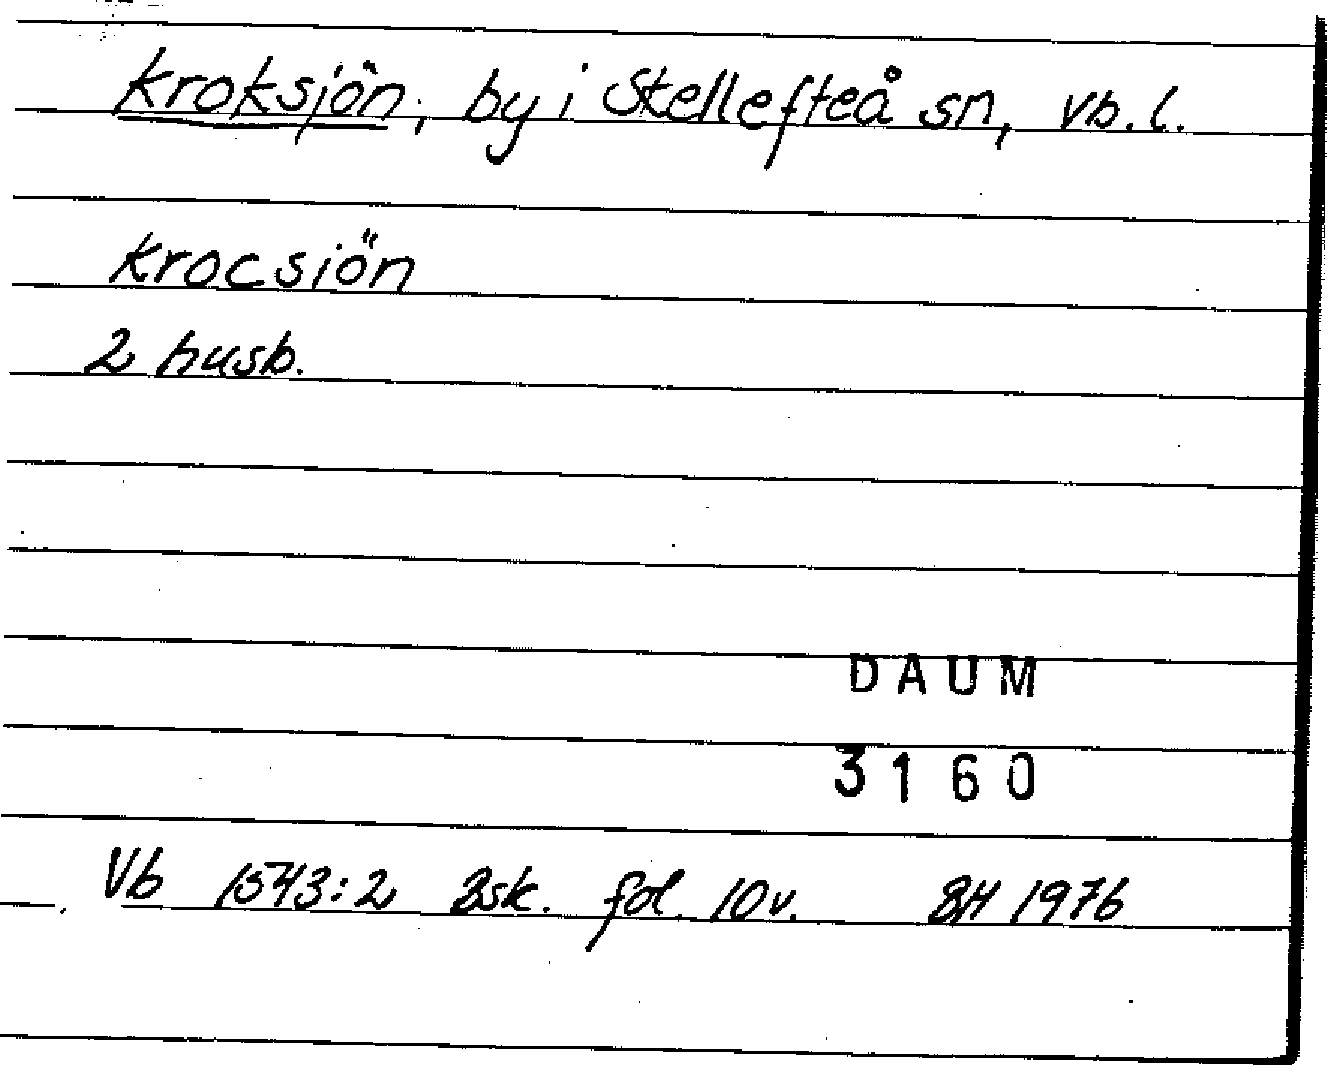 Kroksjön, by i Skellefteå sn, Vb. l.
Krocsiön
2 husb.
DAUM
3160
Vb 1543:2 Bsk. fol. 10v. BH 1976